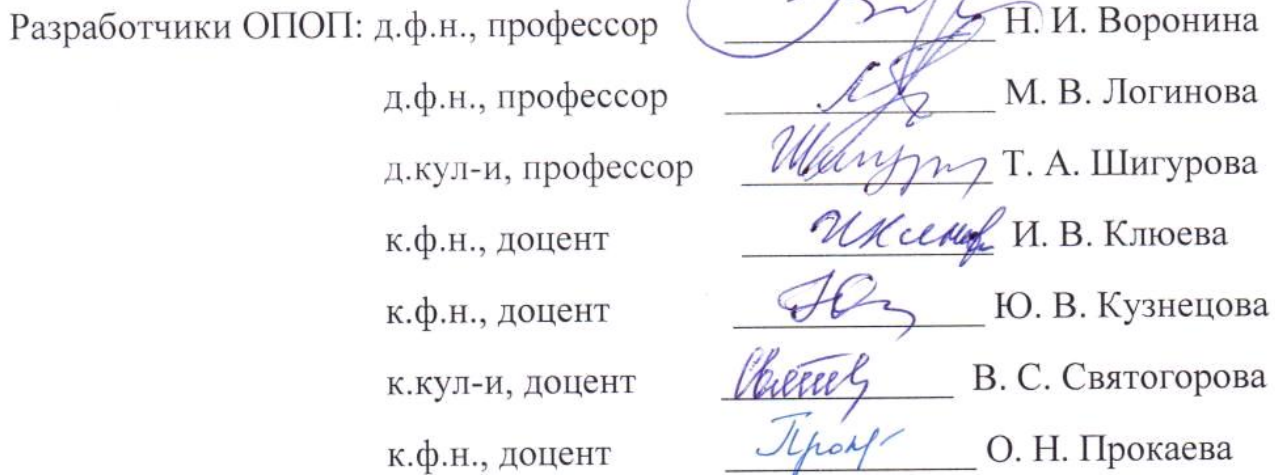 Разработчики ОПОП: д.ф.н., профессор Н. И. Воронина
д.ф.н., профессор М. В. Логинова
д.кул-и, профессор Т. А. Шигурова
к.ф.н., доцент И. В. Клюева
к.ф.н., доцент Ю. В. Кузнецова
к.кул-и, доцент В. С. Святогорова
к.ф.н., доцент О. Н. Прокаева